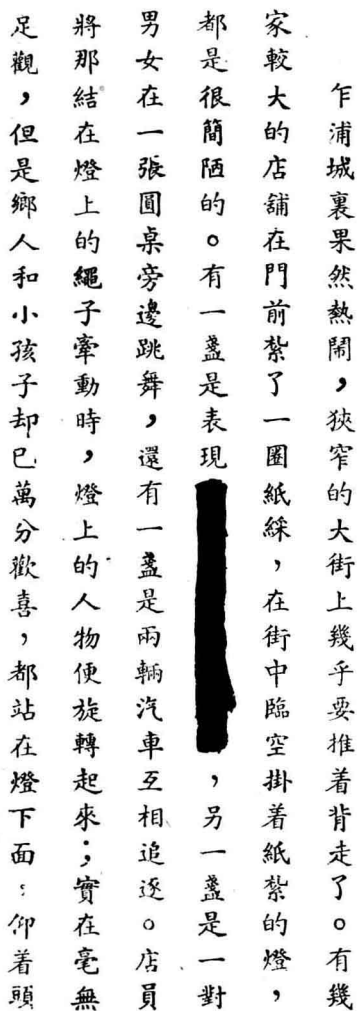 乍浦城裏果然熱鬧，狹窄的大街上幾乎要推着背走了。有幾
家較大的店舖在門前紮了一圈紙綵，在街中臨空掛着紙紮的燈，
都是很簡陋的。有一盞是表現，另一盞是一對
男女在一張圓桌旁邊跳舞，還有一盞是兩輛汽車互相追逐。店員
將那結在燈上的繩子牽動時，燈上的人物便旋轉起來；實在毫無
足觀，但是鄉人和小孩子却已萬分歡喜，都站在燈下面；仰着頭